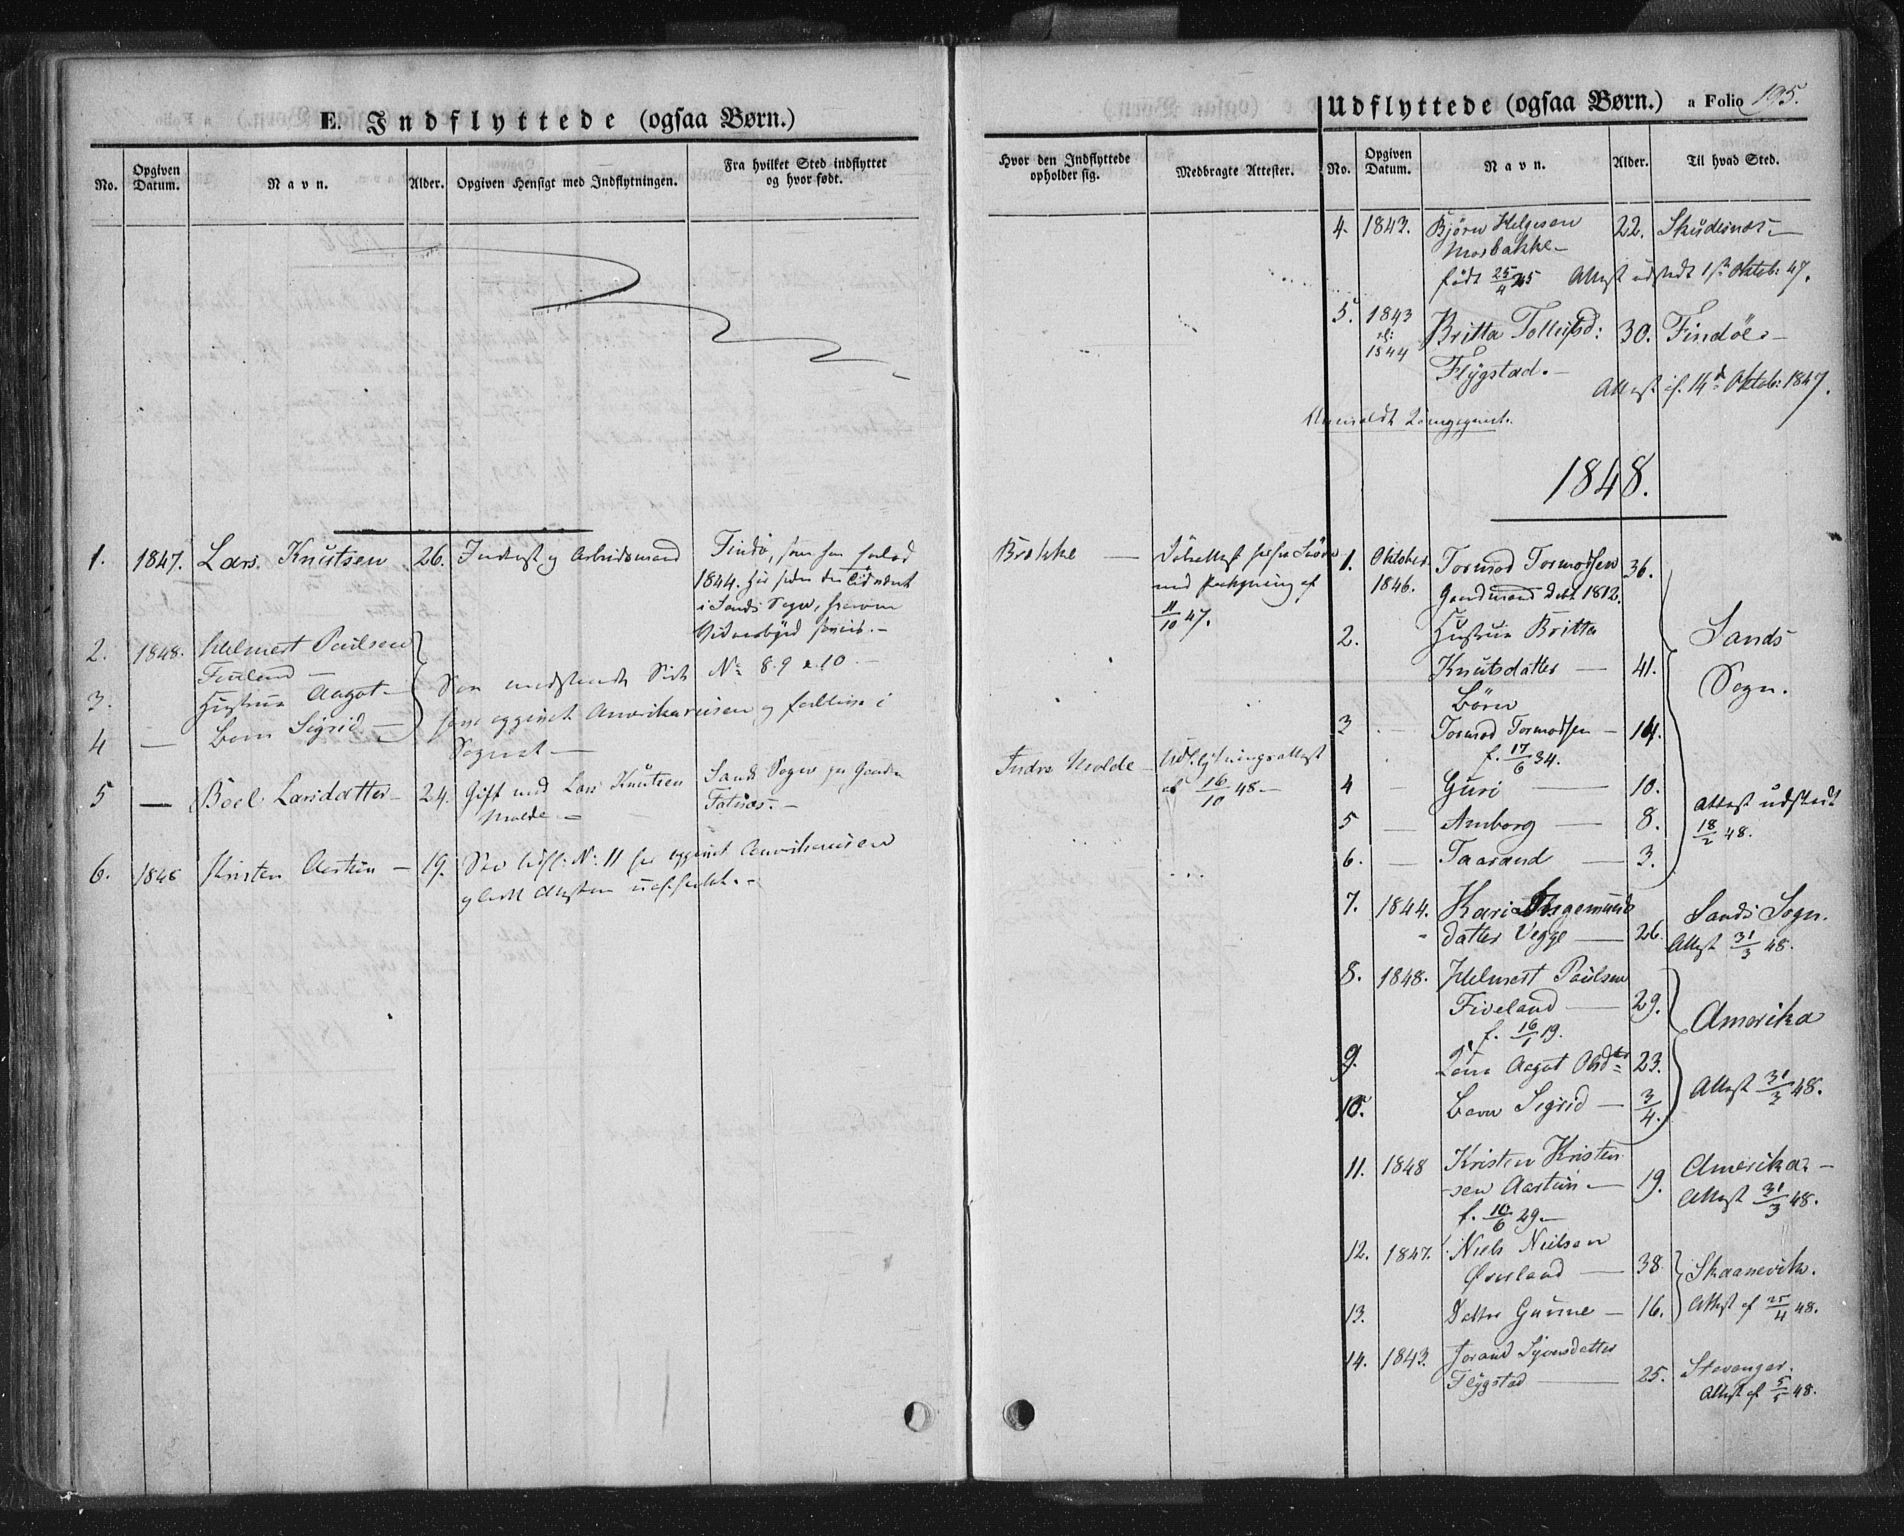 E. Indflyttede (ogsaa Børn.)
No.
Opgiven Datum.
Navn.
Alder.
Opgiven Hensigt med Indflytningen.
Fra hvilket Sted indflyttet og hvor født.
1. 1847. Lars Knutsen 26. Inderst og Arbeidsmand
Findö, som han forlod
1844. Har siden den Tid været
i Sands Sogn,
2. 1848. Helmert Paulsen
3. Hustrue Aagot
4 — Barn Sigrid —
See modstaaende Side No 8. 9 & 10. —
have opgivet Amerikareisen og forblive i
Sognet —
5 — Boel Larsdatter 24. Gift med Lars Knutsen
Molde —
Sands Sogn
6. 1848 Kristen Aartun — 19. See Udfl: No 11 har opgivet Amerikareisen
Hvor den Indflyttede opholder sig.
Medbragte Attester.
Brække —
11/10 47.
Indre Molde — Udflytningsattest
af 16/10 48. —
Udflyttede (ogsaa Børn.) a Folio 195.
No.
Opgiven Datum.
Navn.
Alder.
Til hvad Sted.
4. 1843. Bjørn Helgesen 22. Skudesnæs. —
Mosbakke —
født 25/4 25 Attest udstedt 1ste Oktob: 47.
5. 1843 Britta Tollefsd: 30. Findöe —
el:
1844
Flygstad. —
Attest af 14d Oktob: 1847.
1848.
1. Oktober 1846. Tormod Tormodsen 36.
Gaardmand døbt 1812.
2. Hustrue Britta
Knutsdatter — 41.
Sands
Sogn.
Børn
3 Tormod Tormodsen — 14.
f. 17/6 34.
4 — Guri — 10.
5 — Amborg — 8.
Attest udstedt
18/2 48.
6. — Taarand — 3.
7. 1844. Kari Ingemunds
datter Vegge — 26.
Sands Sogn.
Attest 31/3 48.
8. 1848. Helmert Paulsen
Fiveland — 29.
f. 16/1 19.
Amerika
9. Kone Aagot Olsdter 23.
10. Barn Sigrid — 3/4.
Attest 31/3 48.
11. 1848 Kristen Kristen-
sen Aartun — 19.
f. 10/6 29. —
Amerika. —
Attest 31/3 48.
12. 1847. Niels Nielsen
Øverland — 38
Skaanevik.
13. Datter Gunne — 16.
Attest af 25/4 48.
14. 1843. Jorand Sjversdatter
Flygstad — 25.
Stavanger.
Attest af 5/5 48.